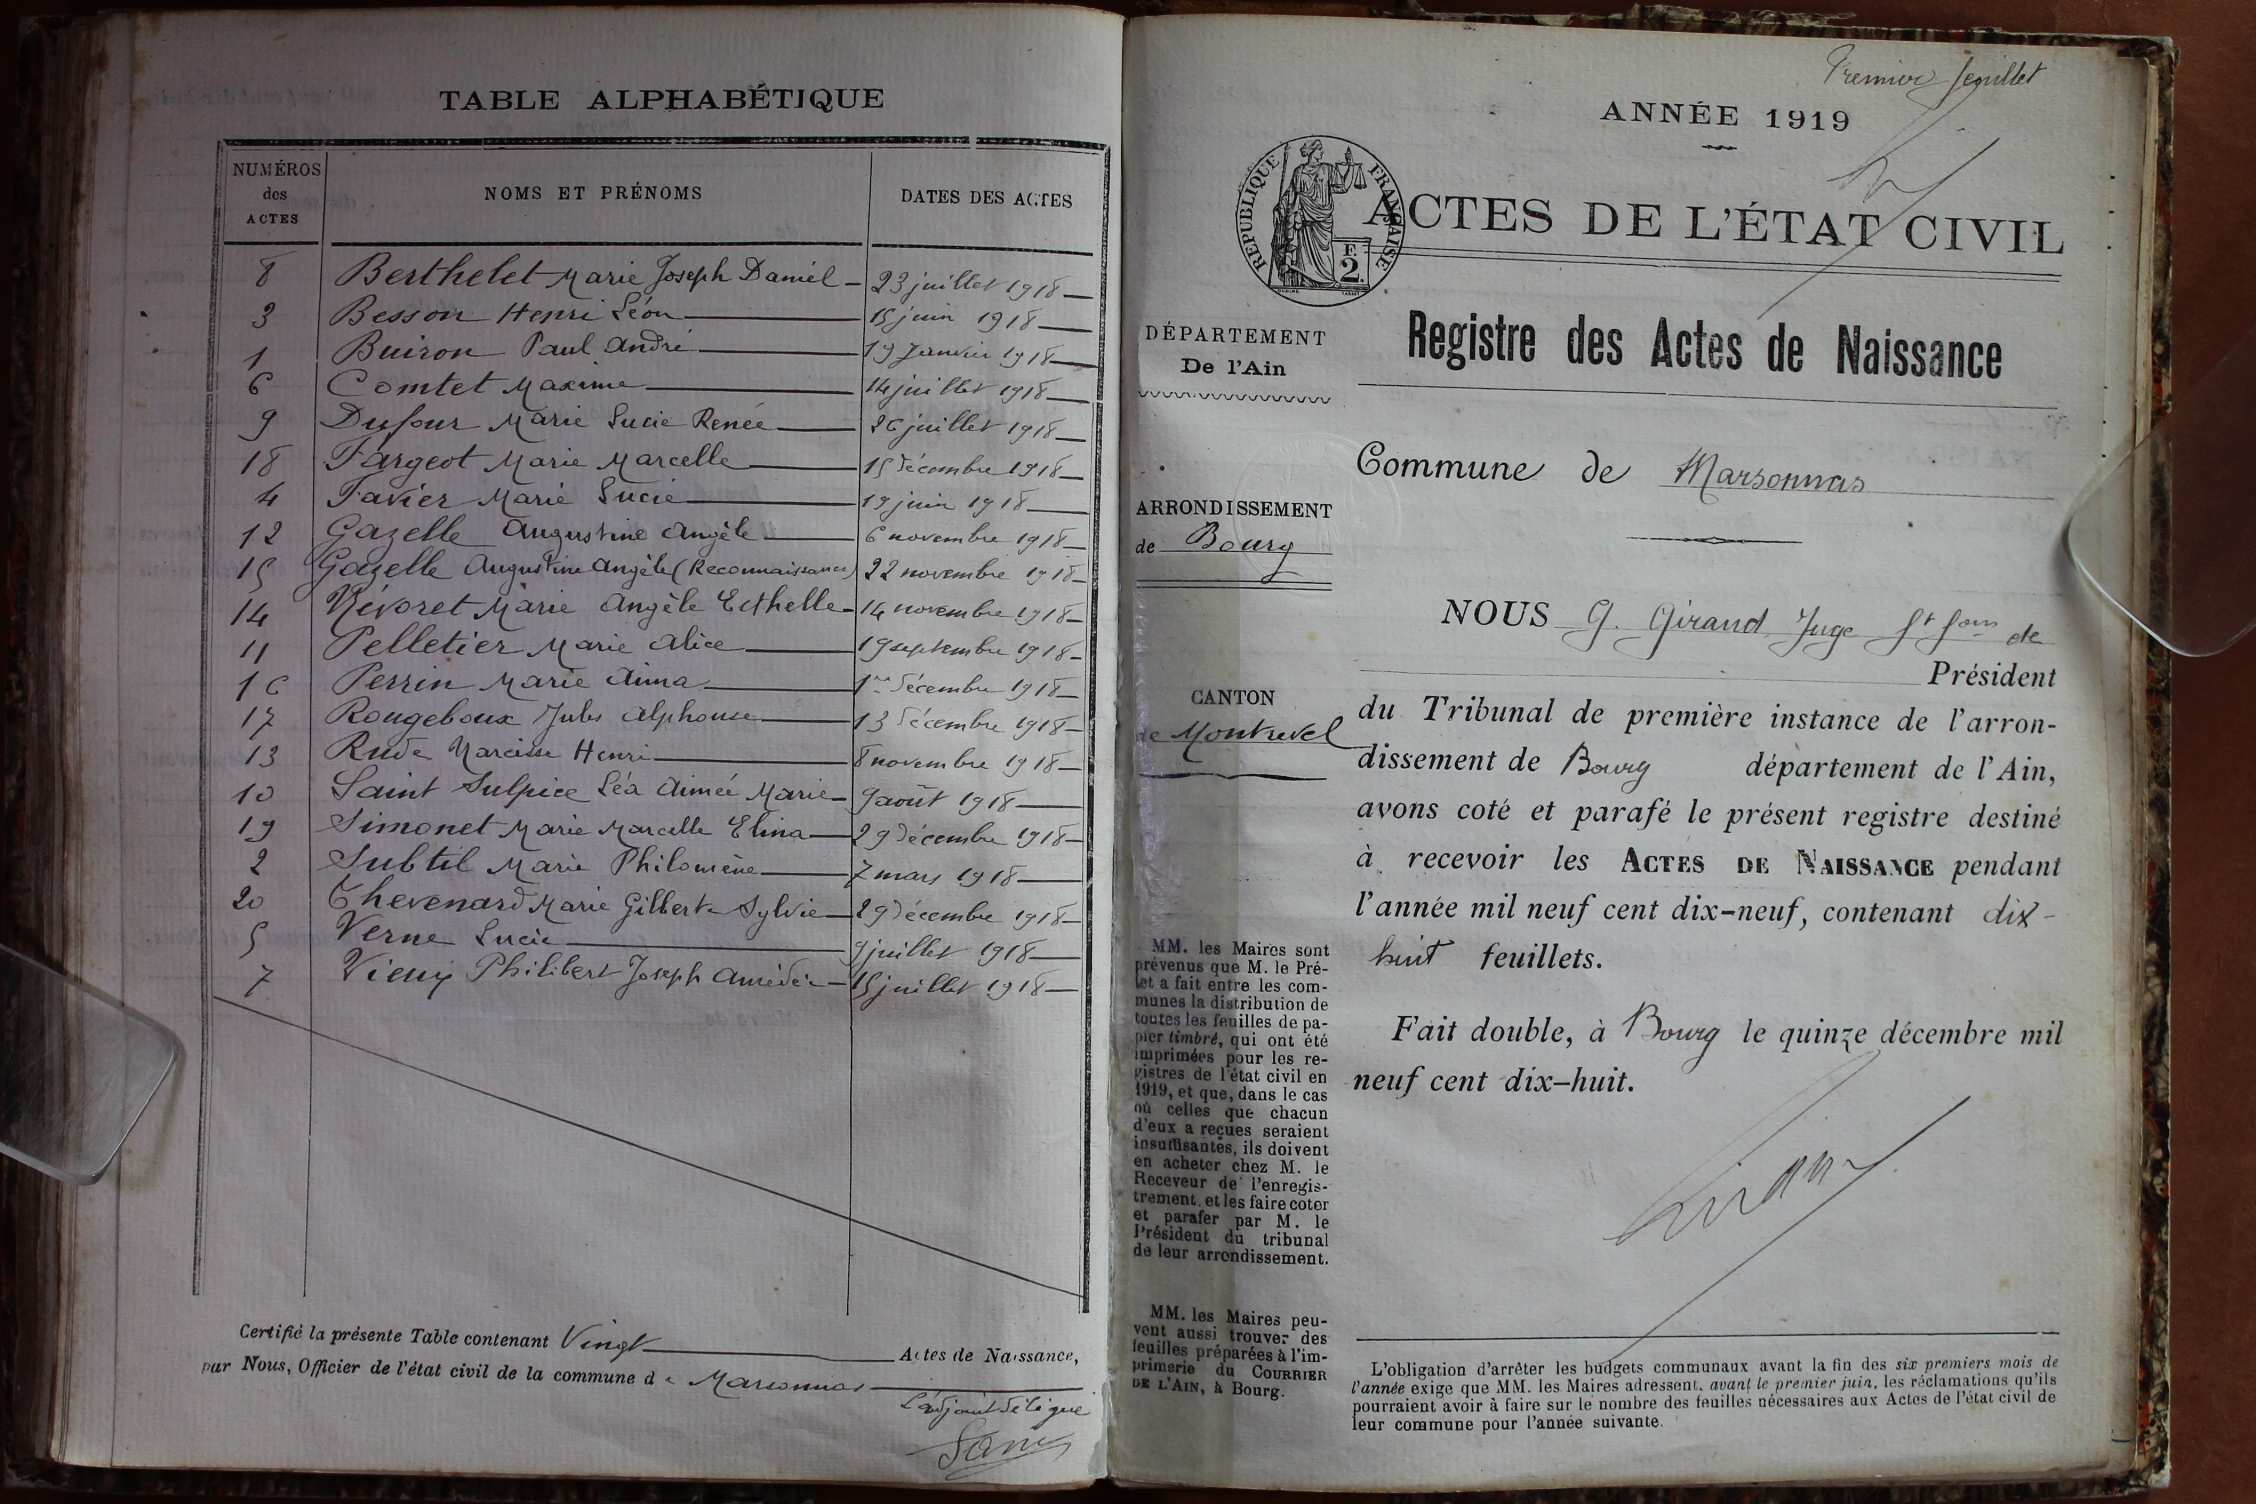 TABLE ALPHABÉTIQUE
NUMÉROS des ACTES | NOMS ET PRÉNOMS | DATES DES ACTES
8 Berthelet Marie Joseph Daniel 23 juillet 1918
3 Besson Henri Léon 15 juin 1918
1 Buiron Paul André 19 Janvier 1918
6 Comtet Maxime 14 juillet 1918
9 Dufour Marie Lucie Renée 26 juillet 1918
18 Fargeot Marie Marcelle 15 décembre 1918
4 Favier Marie Lucie 19 juin 1918
12 Gazelle Augustine Angèle 6 novembre 1918
15 Gazelle Augustine Angèle (Reconnaissance) 22 novembre 1918
14 Névoret Marie Angèle Esthelle 14 novembre 1918
11 Pelletier Marie Alice 19 septembre 1918
16 Perrin Marie Anna 1er décembre 1918
17 Rougeboux Jules Alphonse 13 décembre 1918
13 Rude Narcisse Henri 8 novembre 1918
10 Saint Sulpice Léa Aimée Marie 9 août 1918
19 Simonet Marie Marcelle Elina 29 décembre 1918
2 Subtil Marie Philomène 7 mars 1918
20 Thevenard Marie Gilberte Sylvie 29 décembre 1918
5 Verne Lucie 9 juillet 1918
7 Vieux Philibert Joseph Amédée 15 juillet 1918
Certifié la présente Table contenant Vingt Actes de Naissance,
par Nous, Officier de l'état civil de la commune de Marsonnas
L'adjoint délégué
Premier feuillet
ANNÉE 1919
RÉPUBLIQUE FRANÇAISE
F.
2.
ACTES DE L'ÉTAT CIVIL
DÉPARTEMENT
De l'Ain
Registre des Actes de Naissance
Commune de Marsonnas
ARRONDISSEMENT
de Bourg
NOUS G. Girand Juge de
Président
CANTON
de Montrevel
du Tribunal de première instance de l'arron-
dissement de Bourg département de l'Ain,
avons coté et parafé le présent registre destiné
à recevoir les ACTES DE NAISSANCE pendant
l'année mil neuf cent dix-neuf, contenant dix-
huit feuillets.
Fait double, à Bourg le quinze décembre mil
neuf cent dix-huit.
MM. les Maires sont
prévenus que M. le Pré-
fet a fait entre les com-
munes la distribution de
toutes les feuilles de pa-
pier timbré, qui ont été
imprimées pour les re-
gistres de l'état civil en
1919, et que, dans le cas
où celles que chacun
d'eux a reçues seraient
insuffisantes, ils doivent
en acheter chez M. le
Receveur de l'enregis-
trement, et les faire coter
et parafer par M. le
Président du tribunal
de leur arrondissement.
MM. les Maires peu-
vent aussi trouver des
feuilles préparées à l'im-
primerie du COURRIER
DE L'AIN, à Bourg.
L'obligation d'arrêter les budgets communaux avant la fin des six premiers mois de
l'année exige que MM. les Maires adressent, avant le premier juin, les réclamations qu'ils
pourraient avoir à faire sur le nombre des feuilles nécessaires aux Actes de l'état civil de
leur commune pour l'année suivante.